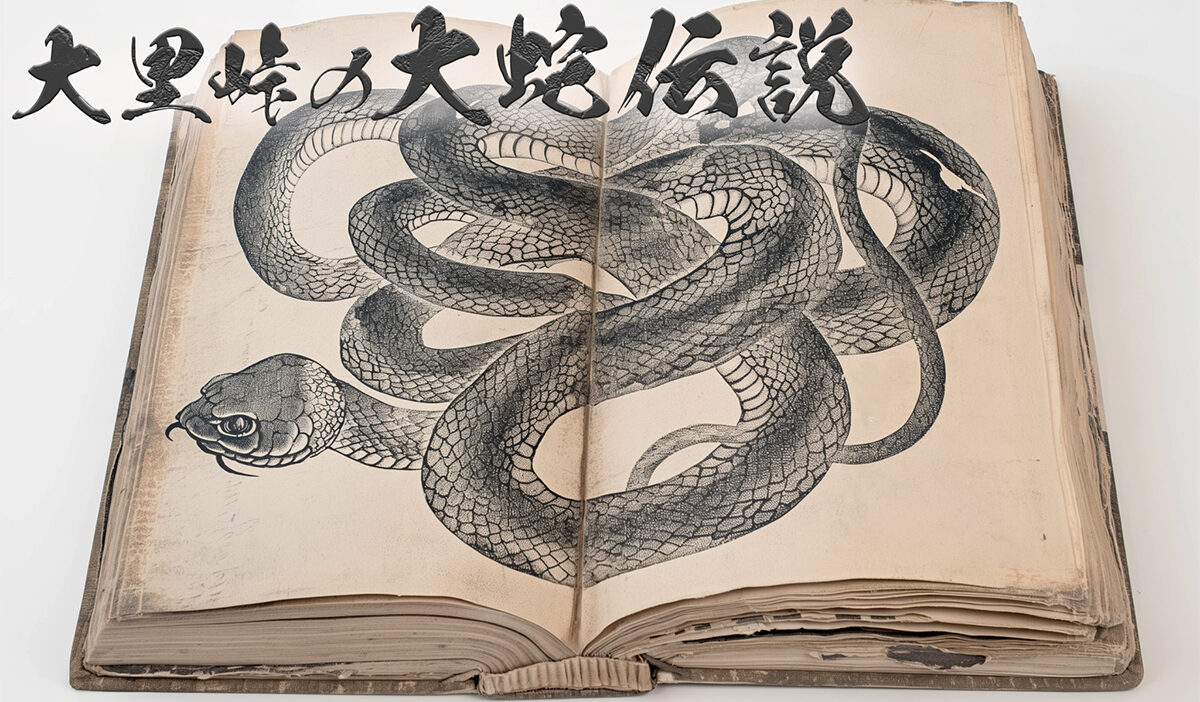 大里峠の大蛇伝説